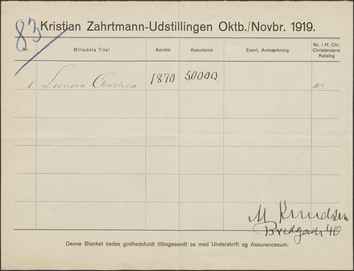 83 Kristian Zahrtmann-Udstillingen Oktb./Novbr. 1919.
Billedets Titel Aarstal Assurance Event. Anmærkning Nr. i H. Chr. Christensens Katalog
1 Leonora Christina 1870 50000
M Knudsen
Bredgade 40
Denne Blanket bedes godhedsfuldt tilbagesendt os med Underskrift og Assurancesum.